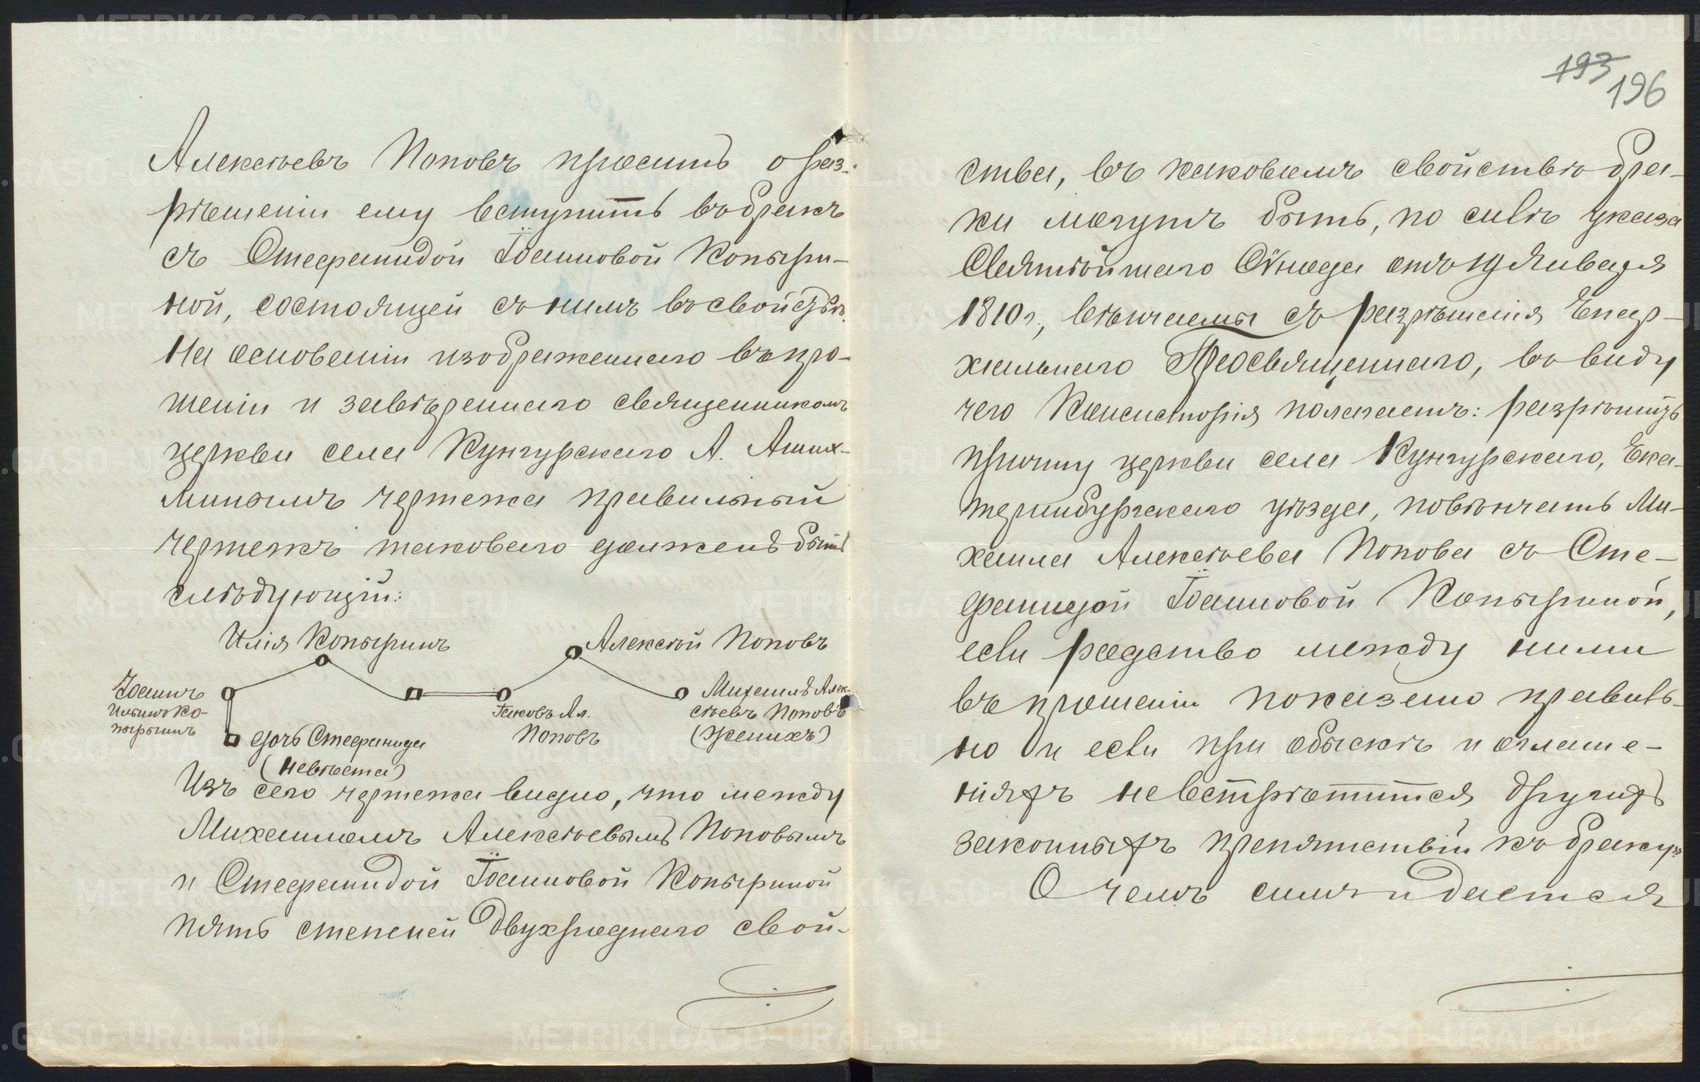 193 196
Алексѣевъ Поповъ проситъ о раз-
рѣшеніи ему вступить въ бракъ
съ Стефанидой Іоанновой Копыри-
ной, состоящей съ нимъ въ свойствѣ.
На основаніи изображеннаго въ про-
шеніи и завѣреннаго священникомъ
церкви села Кунгурскаго А.
чертежа правильный
чертежъ таковаго долженъ быть
слѣдующій:
Илія Копыринъ
Алексѣй Поповъ
Іоаннъ
Ильинъ Ко-
пыринъ
дочь Стефанида
(невѣста)
Іаковъ Ал.
Поповъ
Михаилъ Алек-
сѣевъ Поповъ
(женихъ)
Изъ сего чертежа видно, что между
Михаиломъ Алексѣевымъ Поповымъ
и Стефанидой Іоанновой Копыриной
пять степеней двухроднаго свой-
ства, въ каковомъ свойствѣ бра-
ки могутъ быть, по силѣ указа
Святѣйшаго Сѵнода отъ 19 Января
1810 г., вѣнчаемы съ разрѣшенія Епар-
хіальнаго Преосвященнаго, въ виду
чего Консисторія полагаетъ: разрѣшить
причту церкви села Кунгурскаго, Ека-
теринбургскаго уѣзда, повѣнчать Ми-
хаила Алексѣева Попова съ Сте-
фанидой Іоанновой Копыриной,
если родство между ними
въ прошеніи показано правиль-
но и если при обыскѣ и оглаше-
ніяхъ не встрѣтится другихъ
законныхъ препятствій къ браку,
О чемъ симъ и дается